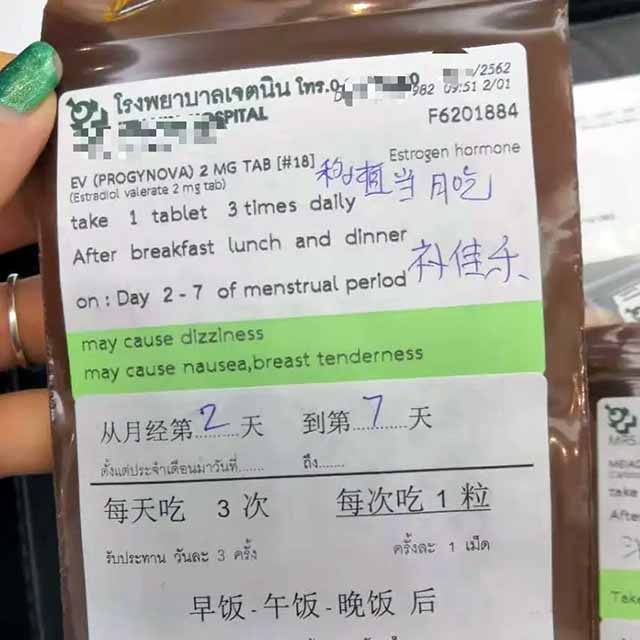 โรงพยาบาลเจตนิน โทร.0
HOSPITAL
/2562
982 09:51 2/01
F6201884
EV (PROGYNOVA) 2 MG TAB [#18]
Estrogen hormone
(Estradiol valerate 2 mg tab)
移植当月吃
take 1 tablet 3 times daily
After breakfast lunch and dinner
补佳乐
on : Day 2 - 7 of menstrual period
may cause dizziness
may cause nausea,breast tenderness
从月经第 2 天 到第 7 天
ตั้งแต่ประจำเดือนมาวันที่....... ถึง......
每天吃 3 次 每次吃 1 粒
รับประทาน วันละ 3 ครั้ง ครั้งละ 1 เม็ด
早饭 - 午饭 - 晚饭 后
MRS
take
Afte
Take